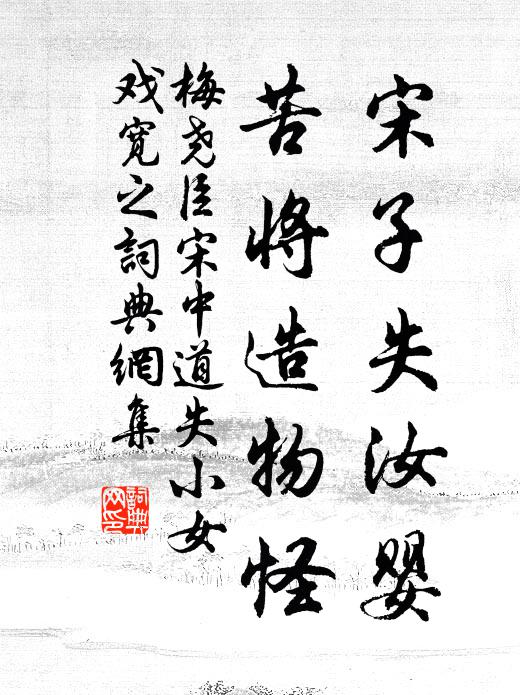 宋子失汝婴
苦将造物怪
梅尧臣宋中道失小女
戏宽之詞典網集
詞典
网印